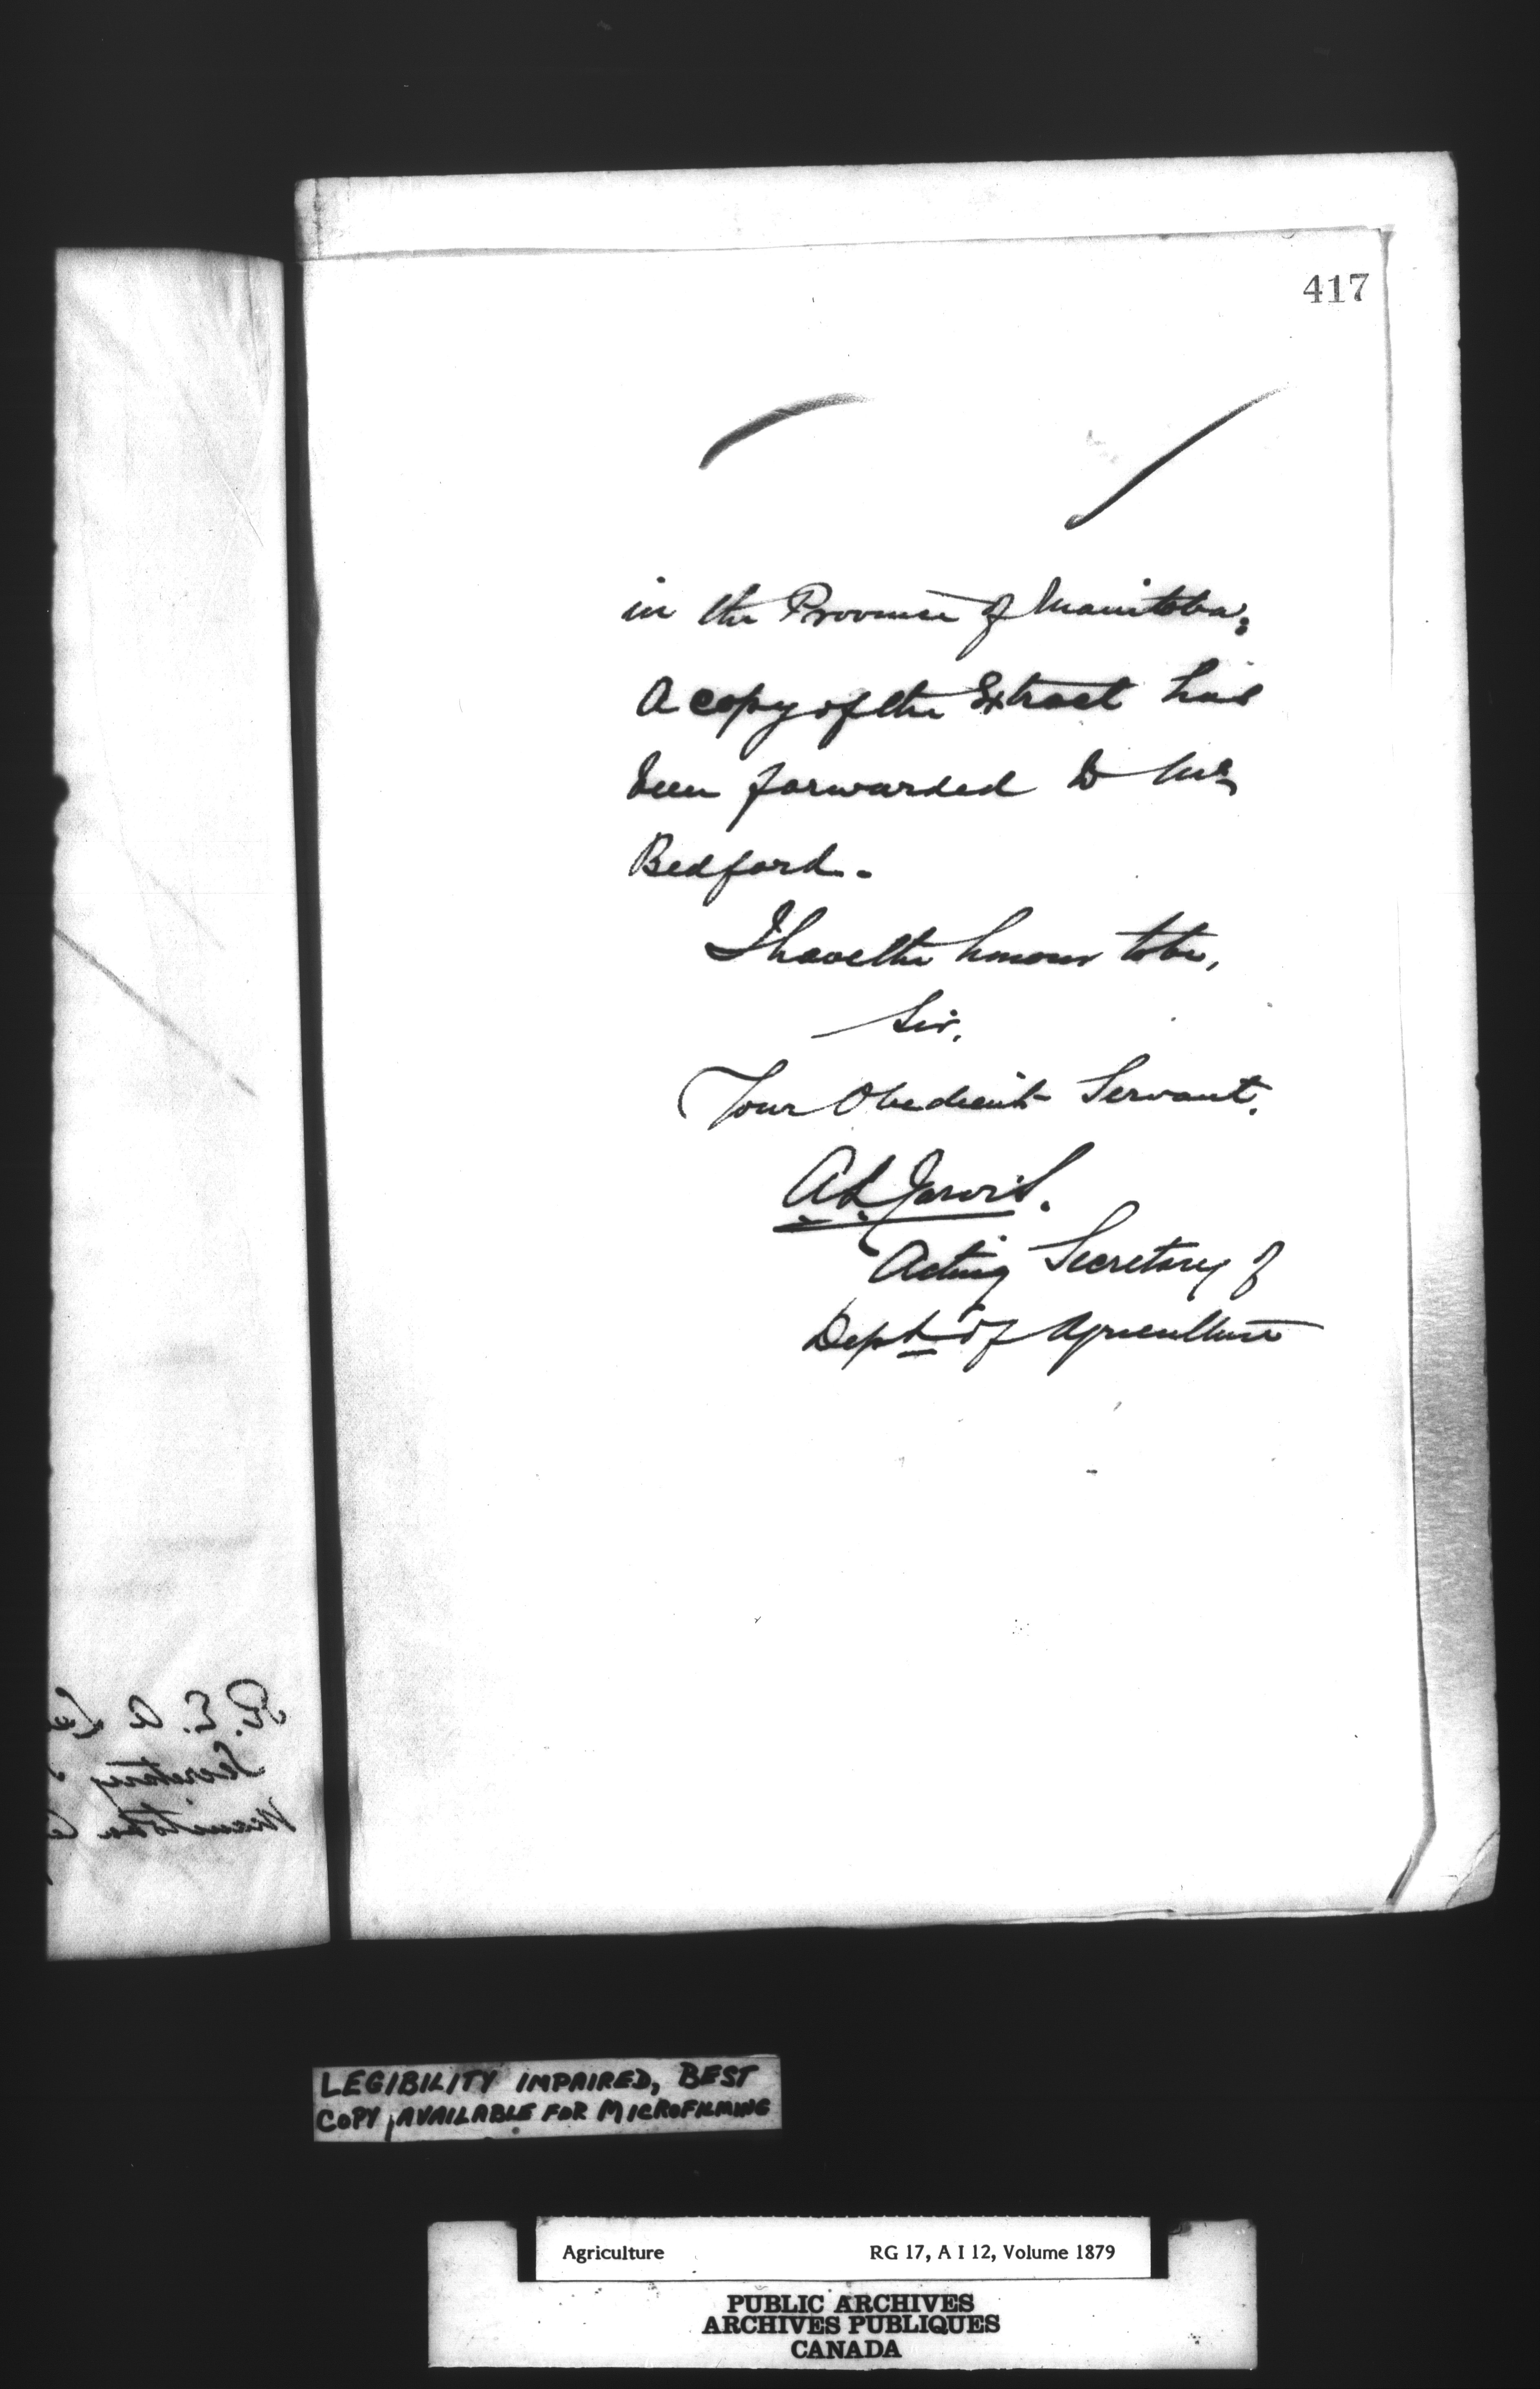 417
in the Province of Manitoba;
A copy of the Extract has
been forwarded to Mr
Bedford.
I have the honour to be,
Sir,
Your Obedient Servant.
A.L. Jarvis.
Acting Secretary of
Dept of Agriculture
R. E. A. Lee
Secretary
Manitoba
LEGIBILITY IMPAIRED, BEST
COPY AVAILABLE FOR MICROFILMING
Agriculture RG 17, A I 12, Volume 1879
PUBLIC ARCHIVES
ARCHIVES PUBLIQUES
CANADA